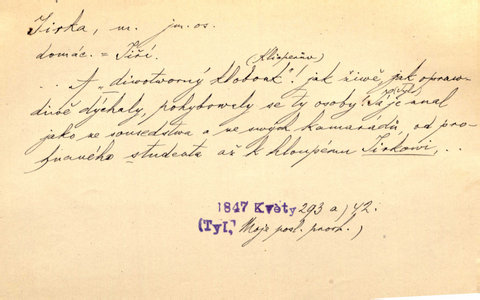 Jirka, m. jm. os.
domác. = Jiří.
(Klicperův)
.. A „divotvorný klobouk"! jak živě, jak opraw-
divě dýchaly, pohybovaly se ty osoby! Já je znal
jako ze sousedstva a ze svých kamarádů, od pro-
hnaného studenta až k hloupému Jirkowi, ..
1847 Květy 293 a) 42.
(Tyl,) Moje posl. )